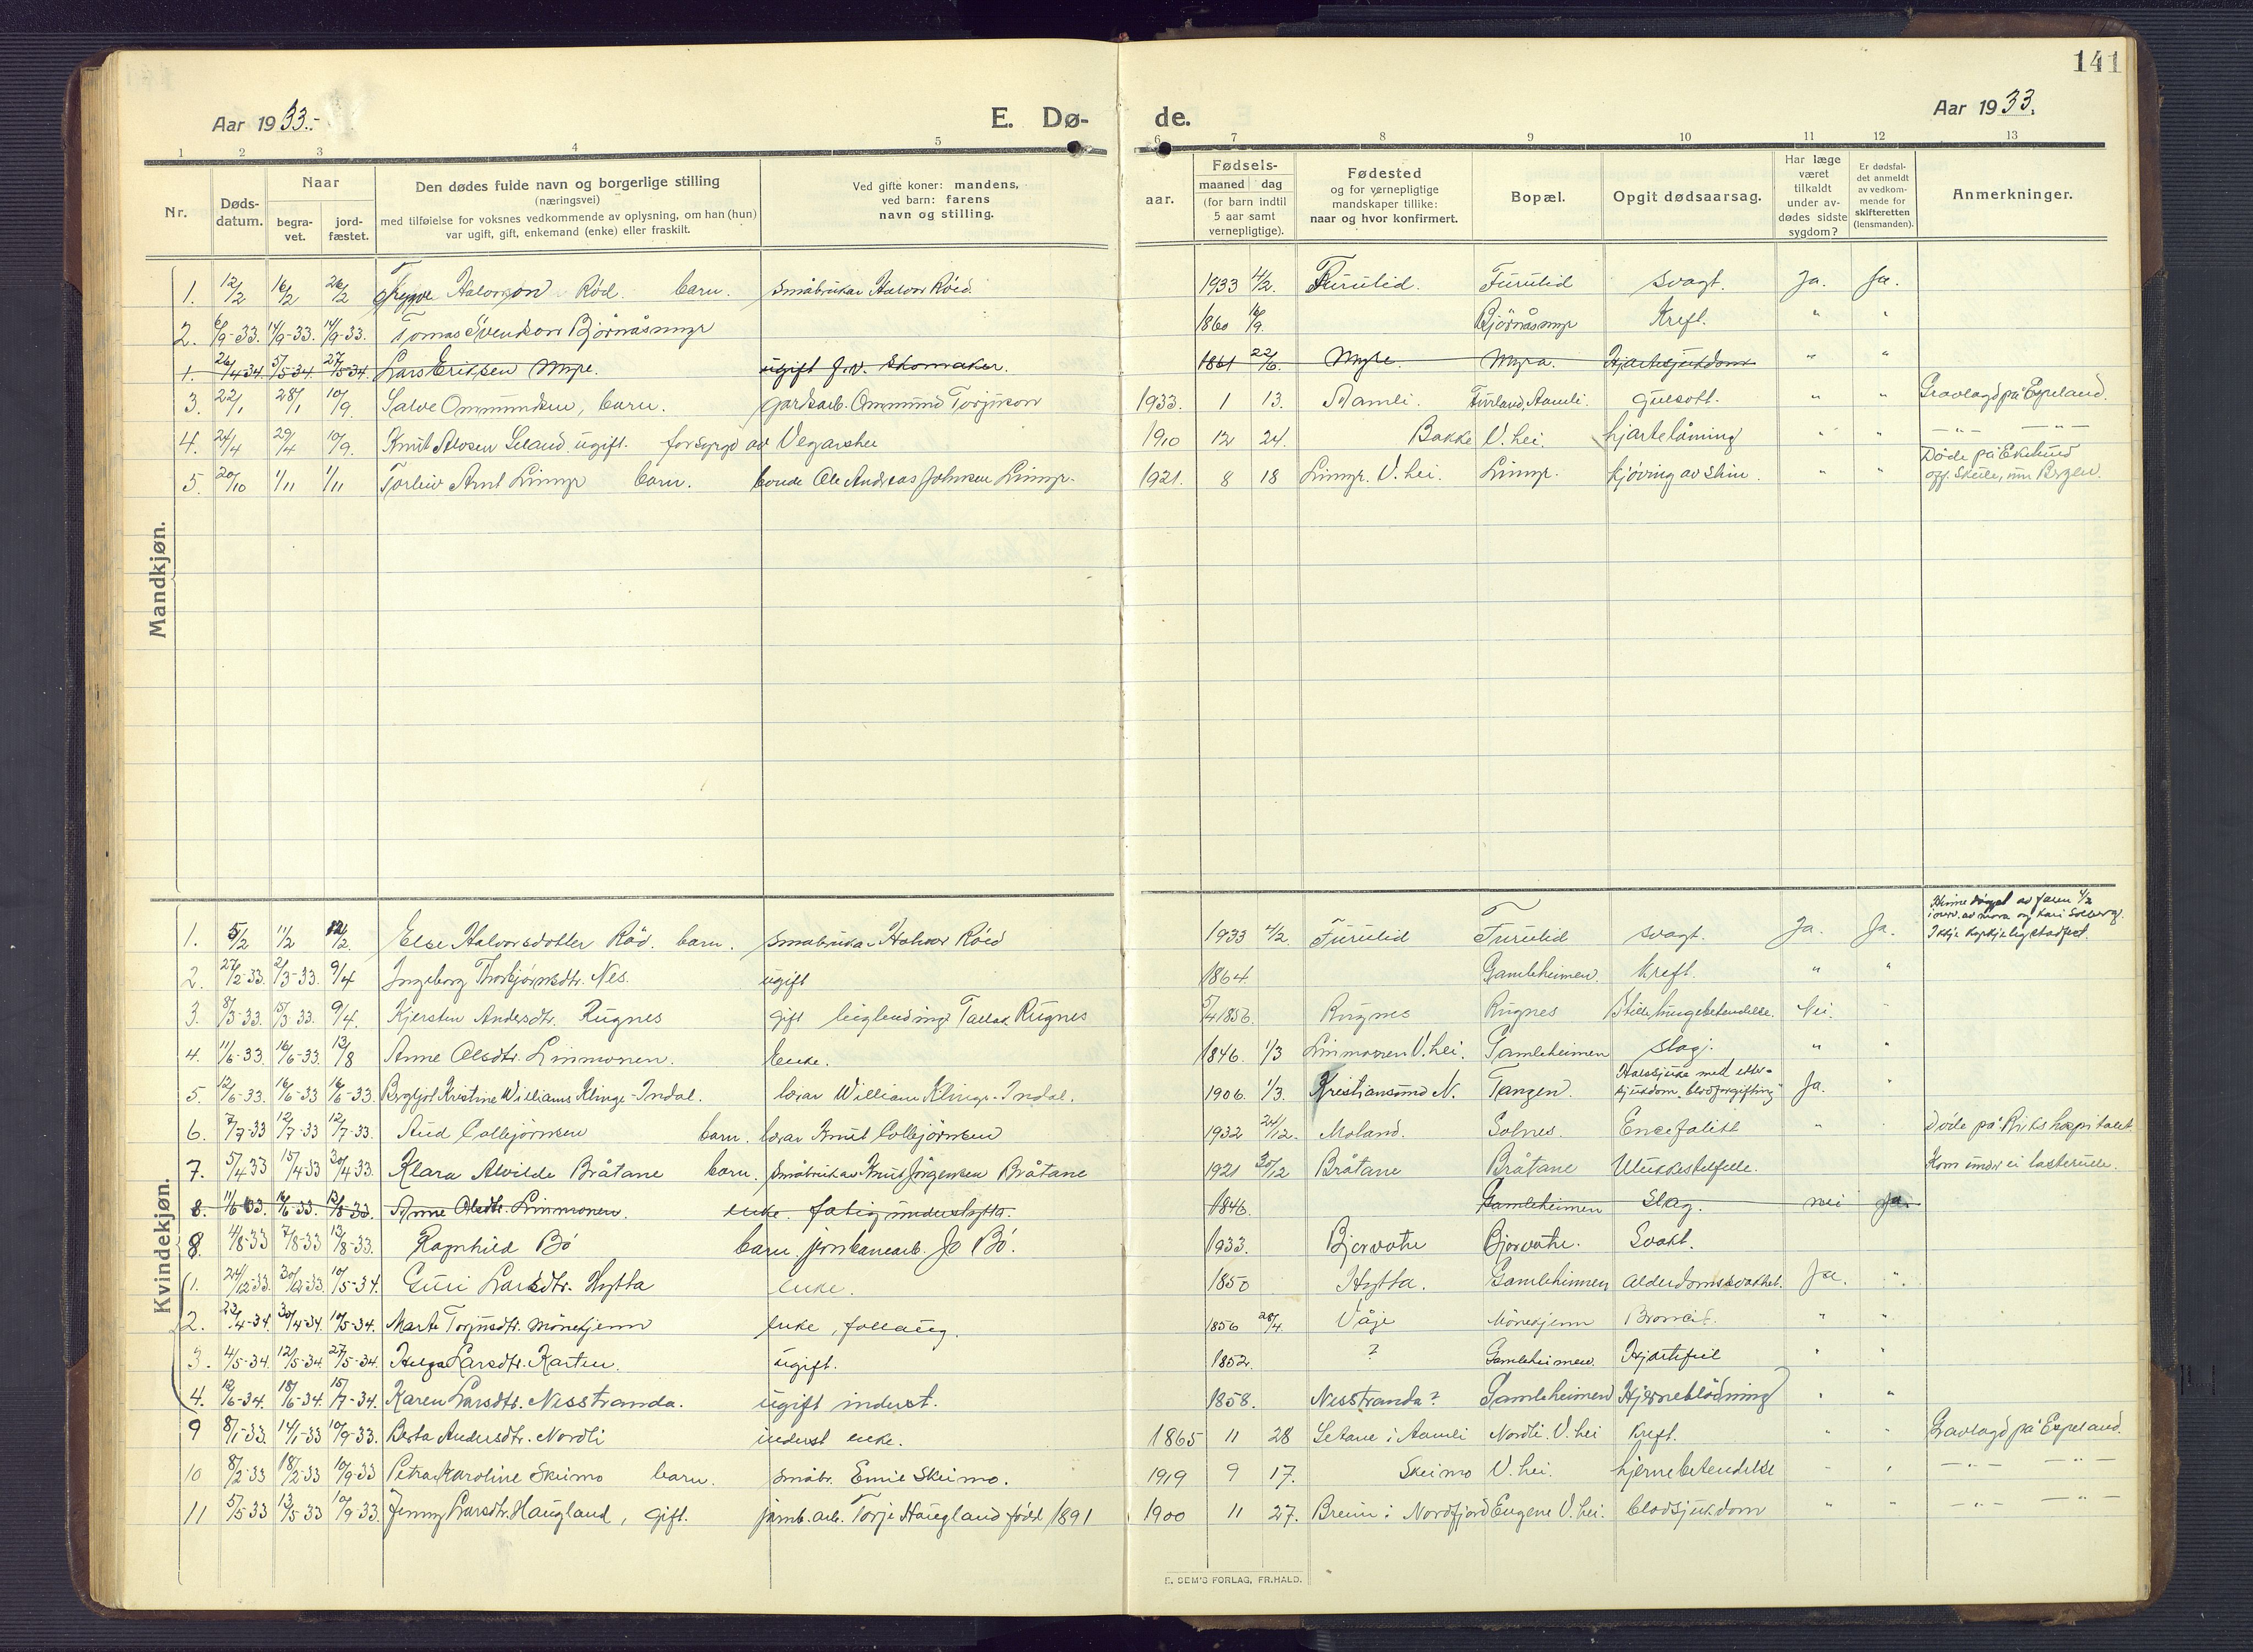 141
Aar 1933.-
E. Dø-
de.
Aar 1933.
1 2 3 4 5
6 7 8 9 10 11 12 13
Nr.
Døds-
datum.
Naar
begra-
vet.
jord-
fæstet.
Den dødes fulde navn og borgerlige stilling
(næringsvei)
med tilføielse for voksnes vedkommende av oplysning, om han (hun)
var ugift, gift, enkemand (enke) eller fraskilt.
Ved gifte koner: mandens,
ved barn: farens
navn og stilling.
aar.
Fødsels-
maaned dag
(for barn indtil
5 aar samt
vernepligtige).
Fødested
og for vernepligtige
mandskaper tillike:
naar og hvor konfirmert.
Bopæl.
Opgit dødsaarsag.
Har læge
været
tilkaldt
under av-
dødes sidste
sygdom?
Er dødsfal-
det anmeldt
av vedkom-
mende for
skifteretten
(lensmanden).
Anmerkninger.
Mandkjøn.
1. 12/2 16/2 26/2 Trygve Halvorson Rød. barn. Småbrukar Halvor Röed. 1933 4/2. Furulid. Furulid svagt. Ja. Ja.
2. 6/9-33. 14/9-33. 14/9-33. Tomas Svenson Björnåsmyr 1860 16/9. Björnåsmyr Kreft. " "
1. 26/4-34. 5/5-34. 27/5-34. Lars Eriksen Myre. ugift f.v. Skomaker. 1861 22/6. Myre. Myra. Hjartesjukdom " "
3. 22/1 28/1 10/9. Salve Ommundsen, barn. gardsarb. Ommund Torjuson 1933. 1 13. Aamli. Furland, Aamli. gulsott. " " Gravlagd på Espeland.
4. 24/4 29/4 10/9. Knut Alvsen Leland ugift. forsyrgd av Vegarshei 1910 12 24. Bakke V. hei. hjartelåming " " — " — — " —
5. 20/10 1/11 1/11 Torleiv Arnt Limyr barn. bonde Ole Andreas Johnsen Limyr. 1921. 8 18 Limyr. V. hei. Limyr. kjöving av slim. " " Döde på Eikelund
off. Skule, um Bergen.
Kvindekjøn.
1. 5/2 11/2 12/2. Else Halvorsdotter Röd. barn. Småbrukar Halvor Röed 1933 4/2. Furulid Furulid svagt. Ja. Ja. Heime döypt av faren 4/2
i overv. av mora og Kari Solberg.
Ikkje kyrkjeleg stadfest.
2. 27/2-33. 2/3-33. 9/4 Ingeborg Thorbjørnsdtr. Nes. ugift 1864. Gamleheimen. Kreft. " "
3. 8/3-33. 15/3 33. 9/4. Kjersten Andersdtr. Rugnes gift leiglending Tallak Rugnes 5/4 1856. Rugnes Rugnes Stille lungebetendelse. Nei. "
4. 11/6-33. 16/6-33. 13/8 Anne Olsdtr. Linmonen. Enke. 1846. 1/3 Linmonen V. hei. Gamleheimen slagj. " "
5. 12/6-33. 16/6-33. 16/6-33. Bergljot Kristine Williams Klinge-Indal. lærar William Klinge-Indal. 1906. 1/3. Kristiansund N. Tangen. Halssjuke med etter-
sjukdom, blodforgiftning Ja. "
6. 7/7-33 12/7-33 12/7-33. Aud Collbjörnsen barn. lærar Knut Collbjörnsen 1932 24/12. Moland. Solnes. Encefalitt " " Döde på Rikshospitalet.
7. 5/4 33 15/4-33 30/4-33. Klara Alvilde Bråtane barn. Småbrukar Knut Jörgensen Bråtane 1921 30/12 Bråtane Bråtane Ulukkestilfelle. Kom under ei lasterulle.
8. 11/6 33. 16/6-33. 13/8-33. Anne Olsdtr. Linmonen. enke. fatigunderstytta. 1846. Gamleheimen Slag. nei Ja.
8. 4/8-33 7/8-33 13/8-33. Ragnhild Bö barn. jernbanearb. Jo Bö. 1933. Bjorvatn Bjorvatn. Svakt.
1. 24/12-33. 30/12-33. 10/5-34. Guri Larsdtr. Hytta enke. 1850 Hytta. Gamleheimen alderdomssvakhet. Ja. "
2. 23/4-34. 30/4-34. 10/5-34. Marte Torjusdtr. Mönekjenn Enke, follaug. 1856 28/4. Våje Mönekjenn Bronkit. " "
3. 4/5-34. 12/5-34 27/5-34. Helga Larsdtr. Karten. ugift. 1852. ? Gamleheimen. Hjartefeil " "
4. 12/6-34. 18/6-34. 15/7-34. Karen Larsdtr. Nesstranda. ugift inderst. 1858. Nesstranda? Gamleheimen Hjerneblödning " "
9 8/1-33. 14/1-33 10/9-33. Berta Andersdtr. Nordli inderst enke. 1865 11 28 Setane i Aamli Nordli. V. hei Kreft. " " Gravlagd på Espeland.
10 8/2-33 18/2-33 10/9-33 Petra Karoline Skeimo barn. Småbr. Emil Skeimo. 1919 9 17. Skeimo V. hei. hjernebetendelse " " — " — — " —
11 5/5-33 13/5-33 10/9-33. Jenny Larsdtr. Haugland, gift. jarnb. arb. Torje Haugland född 1891 1900 11 27. Breim i Nordfjord Eugene V. hei. blodsjukdom " " — " — — " —
E. SEM'S FORLAG, FR.HALD.